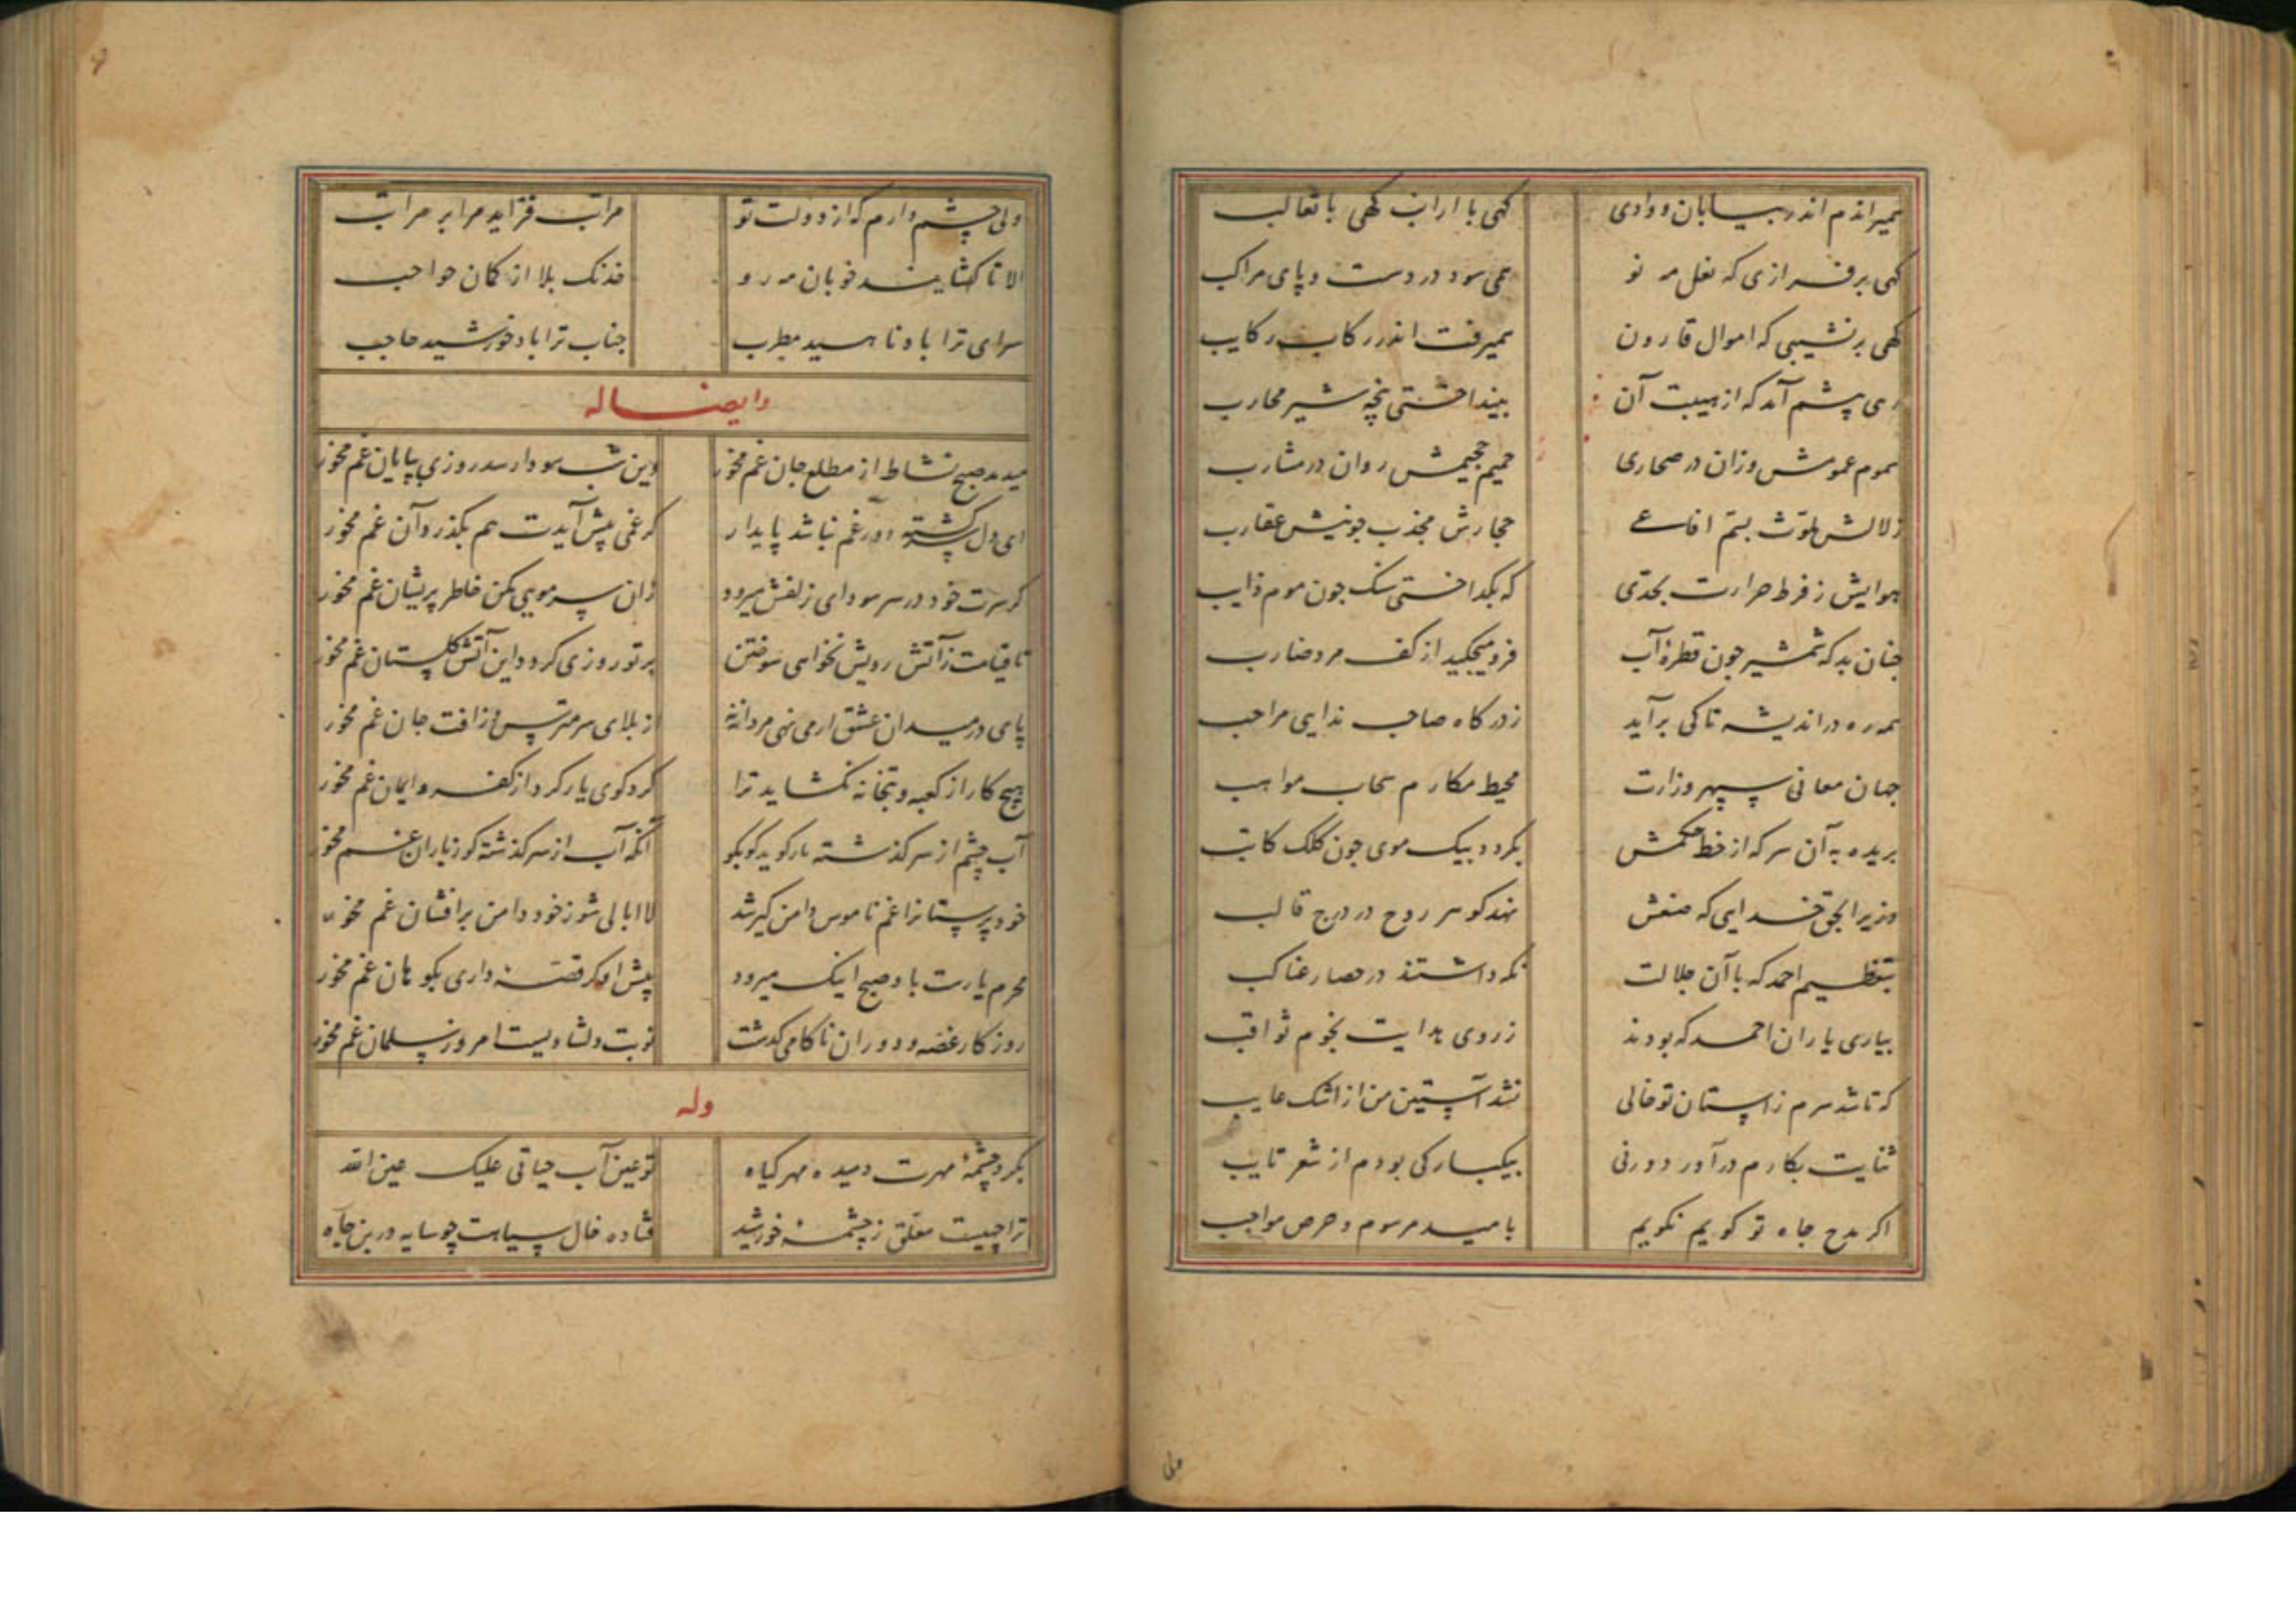 همیراندم اندر بیابان و وادی کهی با ارانب کهی با ثعالب
کهی بر فرازی که نعل مه نو همی سود در دست و پای مراکب
کهی بر نشیبی که اموال قارون همیرفت اندر رکاب رکایب
رهی پیشم آمد که از هیبت آن بینداختی پنجه شیر محارب
سموم عمومش وزان در صحاری حمیم جحیمش روان در مشارب
زلالش ملوث بسم افاعی حجارش مجذب چونیش عقارب
هوایش ز فرط حرارت بحدی که بکداختی سنک چون موم ذایب
چنان بد که شمشیر چون قطره آب فرو میچکید از کف مرد ضارب
همه ره در اندیشه تا کی برآید ز درکاه صاحب ندایی مراحب
جهان معانی سپهر وزارت محیط مکارم سحاب مواهب
بریده به آن سر که از خط حکمش بکردد بیک موی چون کلک کاتب
وزیرا بحق خدایی که صنعش نهد کوهر روح در درج قالب
بتعظیم احمد که با آن جلالت نکه داشتند در حصار عناکب
بیاری یاران احمد که بودند ز روی هدایت نجوم ثواقب
که تا شد سرم ز استان تو خالی نشد آستین من از اشک غایب
ثنایت بکارم درآورد ورنی بیکبارکی بودم از شعر تایب
اکر مدح جاه تو کویم نکویم بامید مرسوم و حرص مواجب
ولی
ولی چشم دارم که از دولت تو مراتب فزاید مرا بر مراتب
الا تا کشایند خوبان مه رو خدنک بلا از کمان حواجب
سرای ترا باد ناهید مطرب جناب ترا باد خورشید حاجب
وایضا له
میدمد صبح نشاط از مطلع جان غم مخور وین شب سودا رسد روزی بپایان غم مخور
ای دل سرکشته دور غم نباشد پایدار کر غمی پیش آیدت هم بکذرد آن غم مخور
کر سرت خود در سر سودای زلفش میرود زان سر مویی مکن خاطر پریشان غم مخور
تا قیامت ز آتش رویش نخواهی سوختن بر تو روزی کردد این آتش کلستان غم مخور
پای در میدان عشق ار می نهی مردانه از بلای سر مترس از افت جان غم مخور
هیچ کار از کعبه و بتخانه نکشاید ترا کرد کوی یار کرد از کفر و ایمان غم مخور
آب چشم از سر کذشته یار کوید کو بکو آنکه آب از سر کذشته کو ز باران غم مخور
خود پرستانرا غم ناموس دامن کیر شد لاابالی شو ز خود دامن برافشان غم مخور
محرم یارت باد صبح اینک میرود پیش او کر قصه داری بکو هان غم مخور
روزکار غصه و دوران ناکامی کذشت نوبت دلشادیست امروز سلمان غم مخور
وله
بکرد چشمه مهرت دمیده مهر کیاه تو عین آب حیاتی علیک عین الله
ترا چیست معلق ز چشمه خورشید فتاده خال سیاهت چو سایه در بن چاه